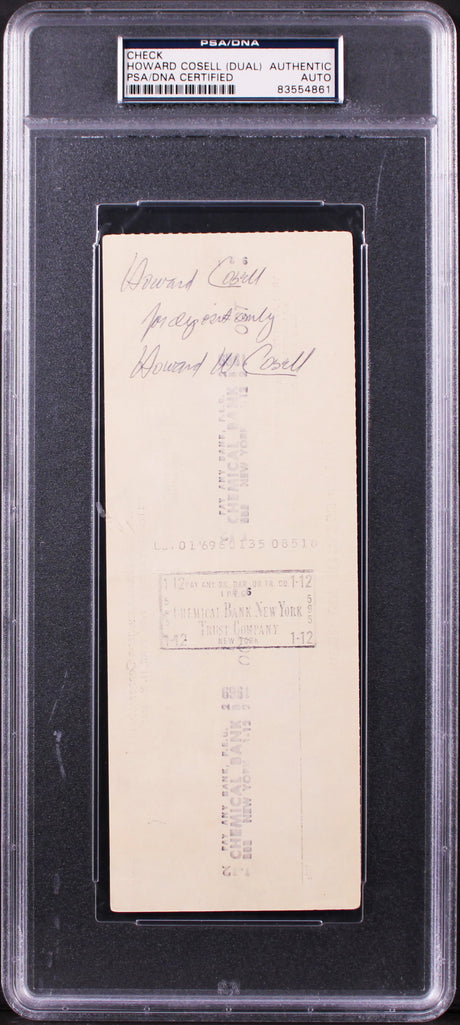 PSA/DNA
CHECK
HOWARD COSELL (DUAL) AUTHENTIC
PSA/DNA CERTIFIED AUTO
83554861
Howard Cosell
for deposit only
Howard W. Cosell
PAY ANY BANK, P.E.G.
CHEMICAL BANK
NEW YORK 1-12
01'69 60135 0851
1-12 PAY ANY BK. BKR. OR TR. CO. 1-12
CHEMICAL BANK NEW YORK
TRUST COMPANY
1-12 NEW YORK 1-12
595
OCT
1969
PAY ANY BANK, P.E.G.
CHEMICAL BANK
NEW YORK 1-12